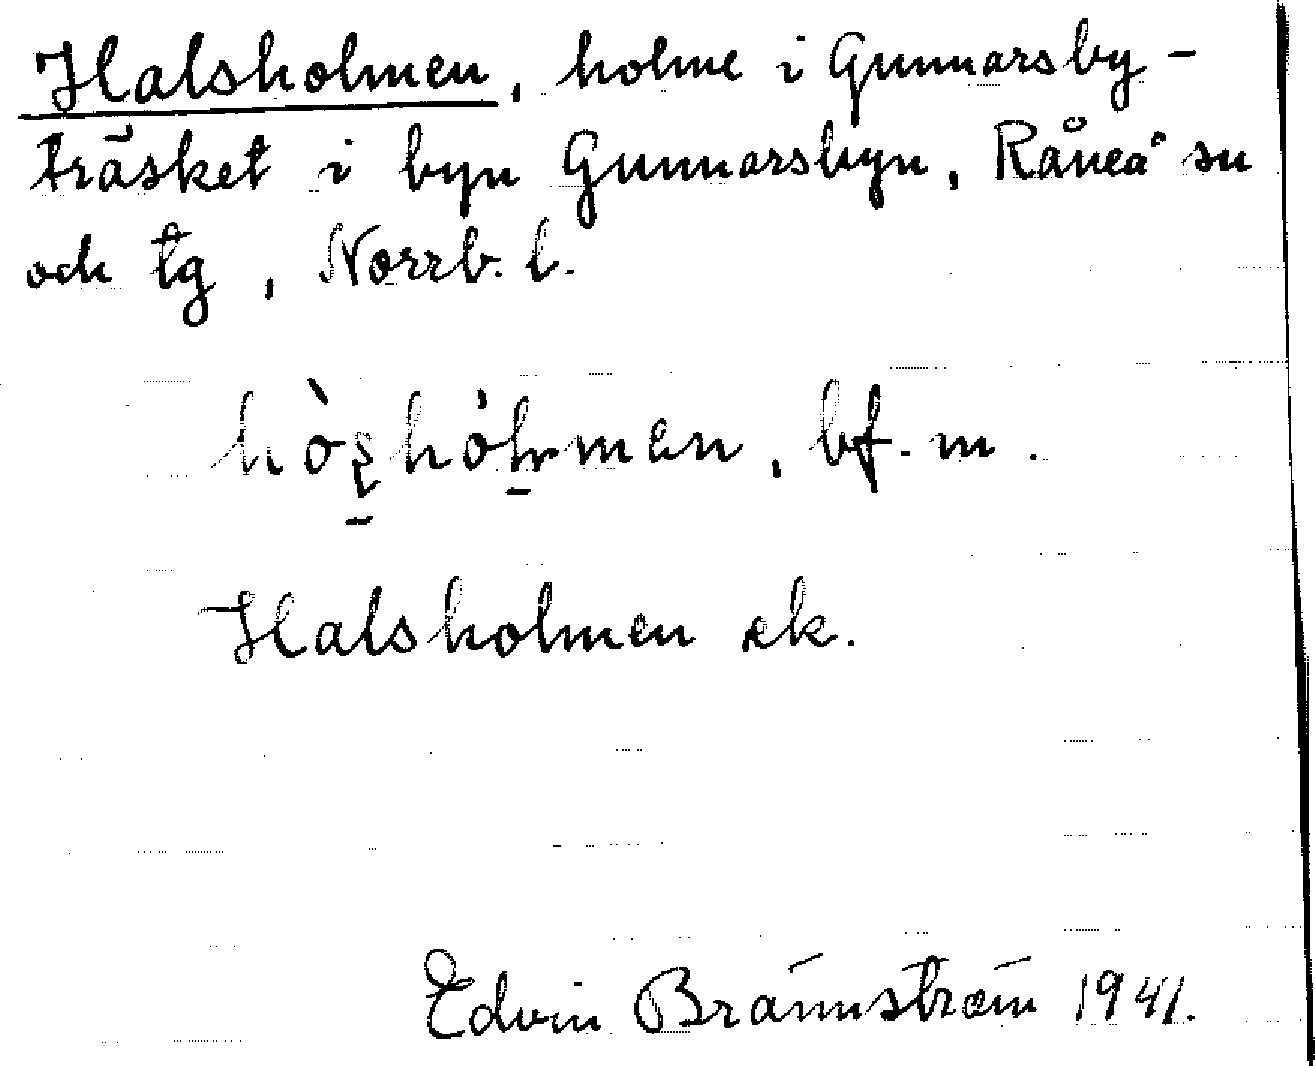 Halsholmen, holme i Gunnarsby-
träsket i byn Gunnarsbyn, Råneå sn
och tg, Norrb. l.
bf. m.
Halsholmen ek.
Edvin Brännström 1941.